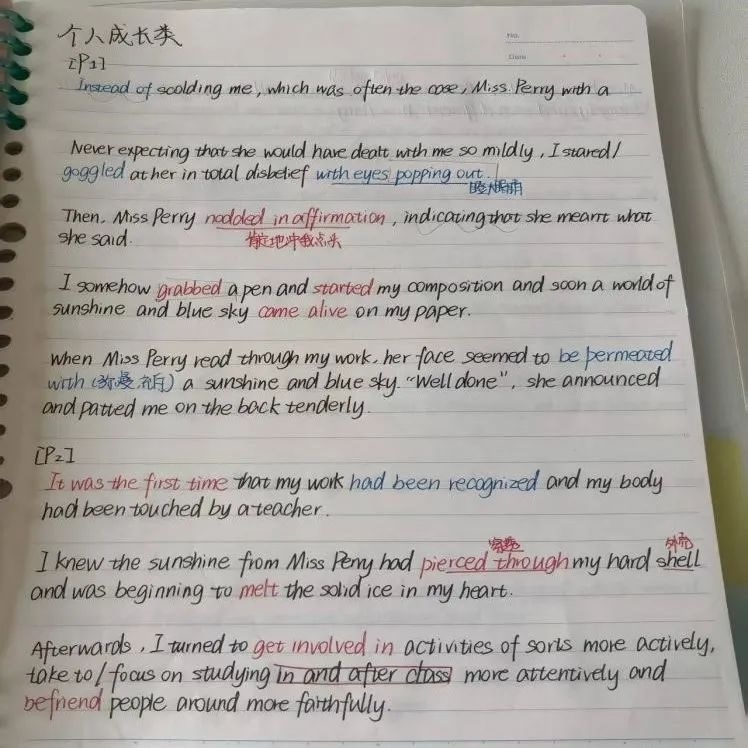 个人成长类
No.
Date
[P1]
Instead of scolding me, which was often the case, Miss Perry with a
Never expecting that she would have dealt with me so mildly, I stared/
goggled at her in total disbelief with eyes popping out.
Then, Miss Perry nodded in affirmation, indicating that she meant what
she said.
肯定地冲我点头
I somehow grabbed a pen and started my composition and soon a world of
sunshine and blue sky came alive on my paper.
When Miss Perry read through my work, her face seemed to be permeated
with (弥漫着) a sunshine and blue sky. "Well done", she announced
and patted me on the back tenderly.
[P2]
It was the first time that my work had been recognized and my body
had been touched by a teacher.
穿透 外壳
I knew the sunshine from Miss Perry had pierced through my hard shell
and was beginning to melt the solid ice in my heart.
Afterwards, I turned to get involved in activities of sorts more actively,
take to/focus on studying in and after class more attentively and
befriend people around more faithfully.